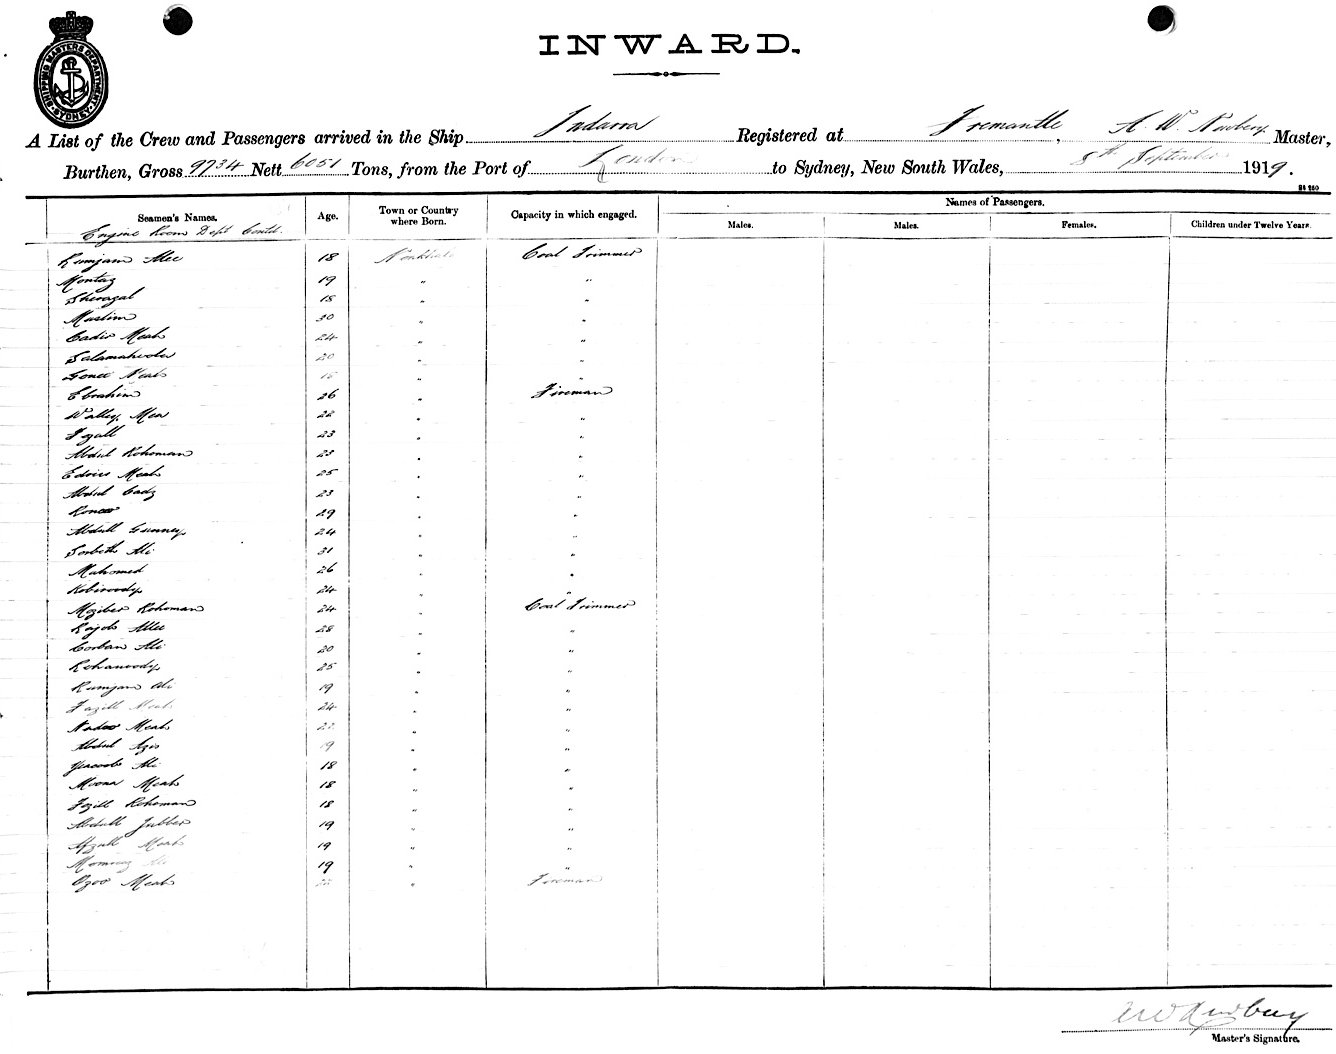 SHIPPING MASTERS DEPARTMENT SYDNEY
INWARD.
A List of the Crew and Passengers arrived in the Ship Indarra Registered at Fremantle, A. W. Newbery Master,
Burthen, Gross 9734 Nett 6051 Tons, from the Port of London to Sydney, New South Wales, 8th September 1919.
Seamen's Names. Age. Town or Country where Born. Capacity in which engaged. Names of Passengers.
Males. Males. Females. Children under Twelve Years.
Engine Room Dept Contd.
Rumjam Alee 18 Coal Trimmer
Montaz 19 " "
Sherazal 18 " "
Muslim 30 " "
Cadir Meah 24 " "
20 " "
Gonee Meah " "
Ebrahim 26 " Fireman
Walley Mea 22 " "
Fozall 23 " "
Abdul Rohoman 23 " "
Edriss Meah 25 " "
Abdul Cady 23 " "
29 " "
Abdull Gunney 24 " "
Sorbeth Ali 31 " "
Mahomed 26 " "
Kobiroody 24 " "
Moziber Rohoman 24 " Coal Trimmer
Rajob Allee 28 " "
Corban Ali 20 " "
Rehanoody 25 " "
Rumjan Ali 19 " "
Fazill Meah 24 " "
Nadoo Meah 22 " "
Abdul Azis 19 " "
Yacoob Ali 18 " "
Moona Meah 18 " "
Fozill Rohoman 18 " "
Abdull Jubber 19 " "
Afzull Meah 19 " "
Ali 19 " "
Ozoo Meah " Fireman
A W Newbery
Master's Signature.